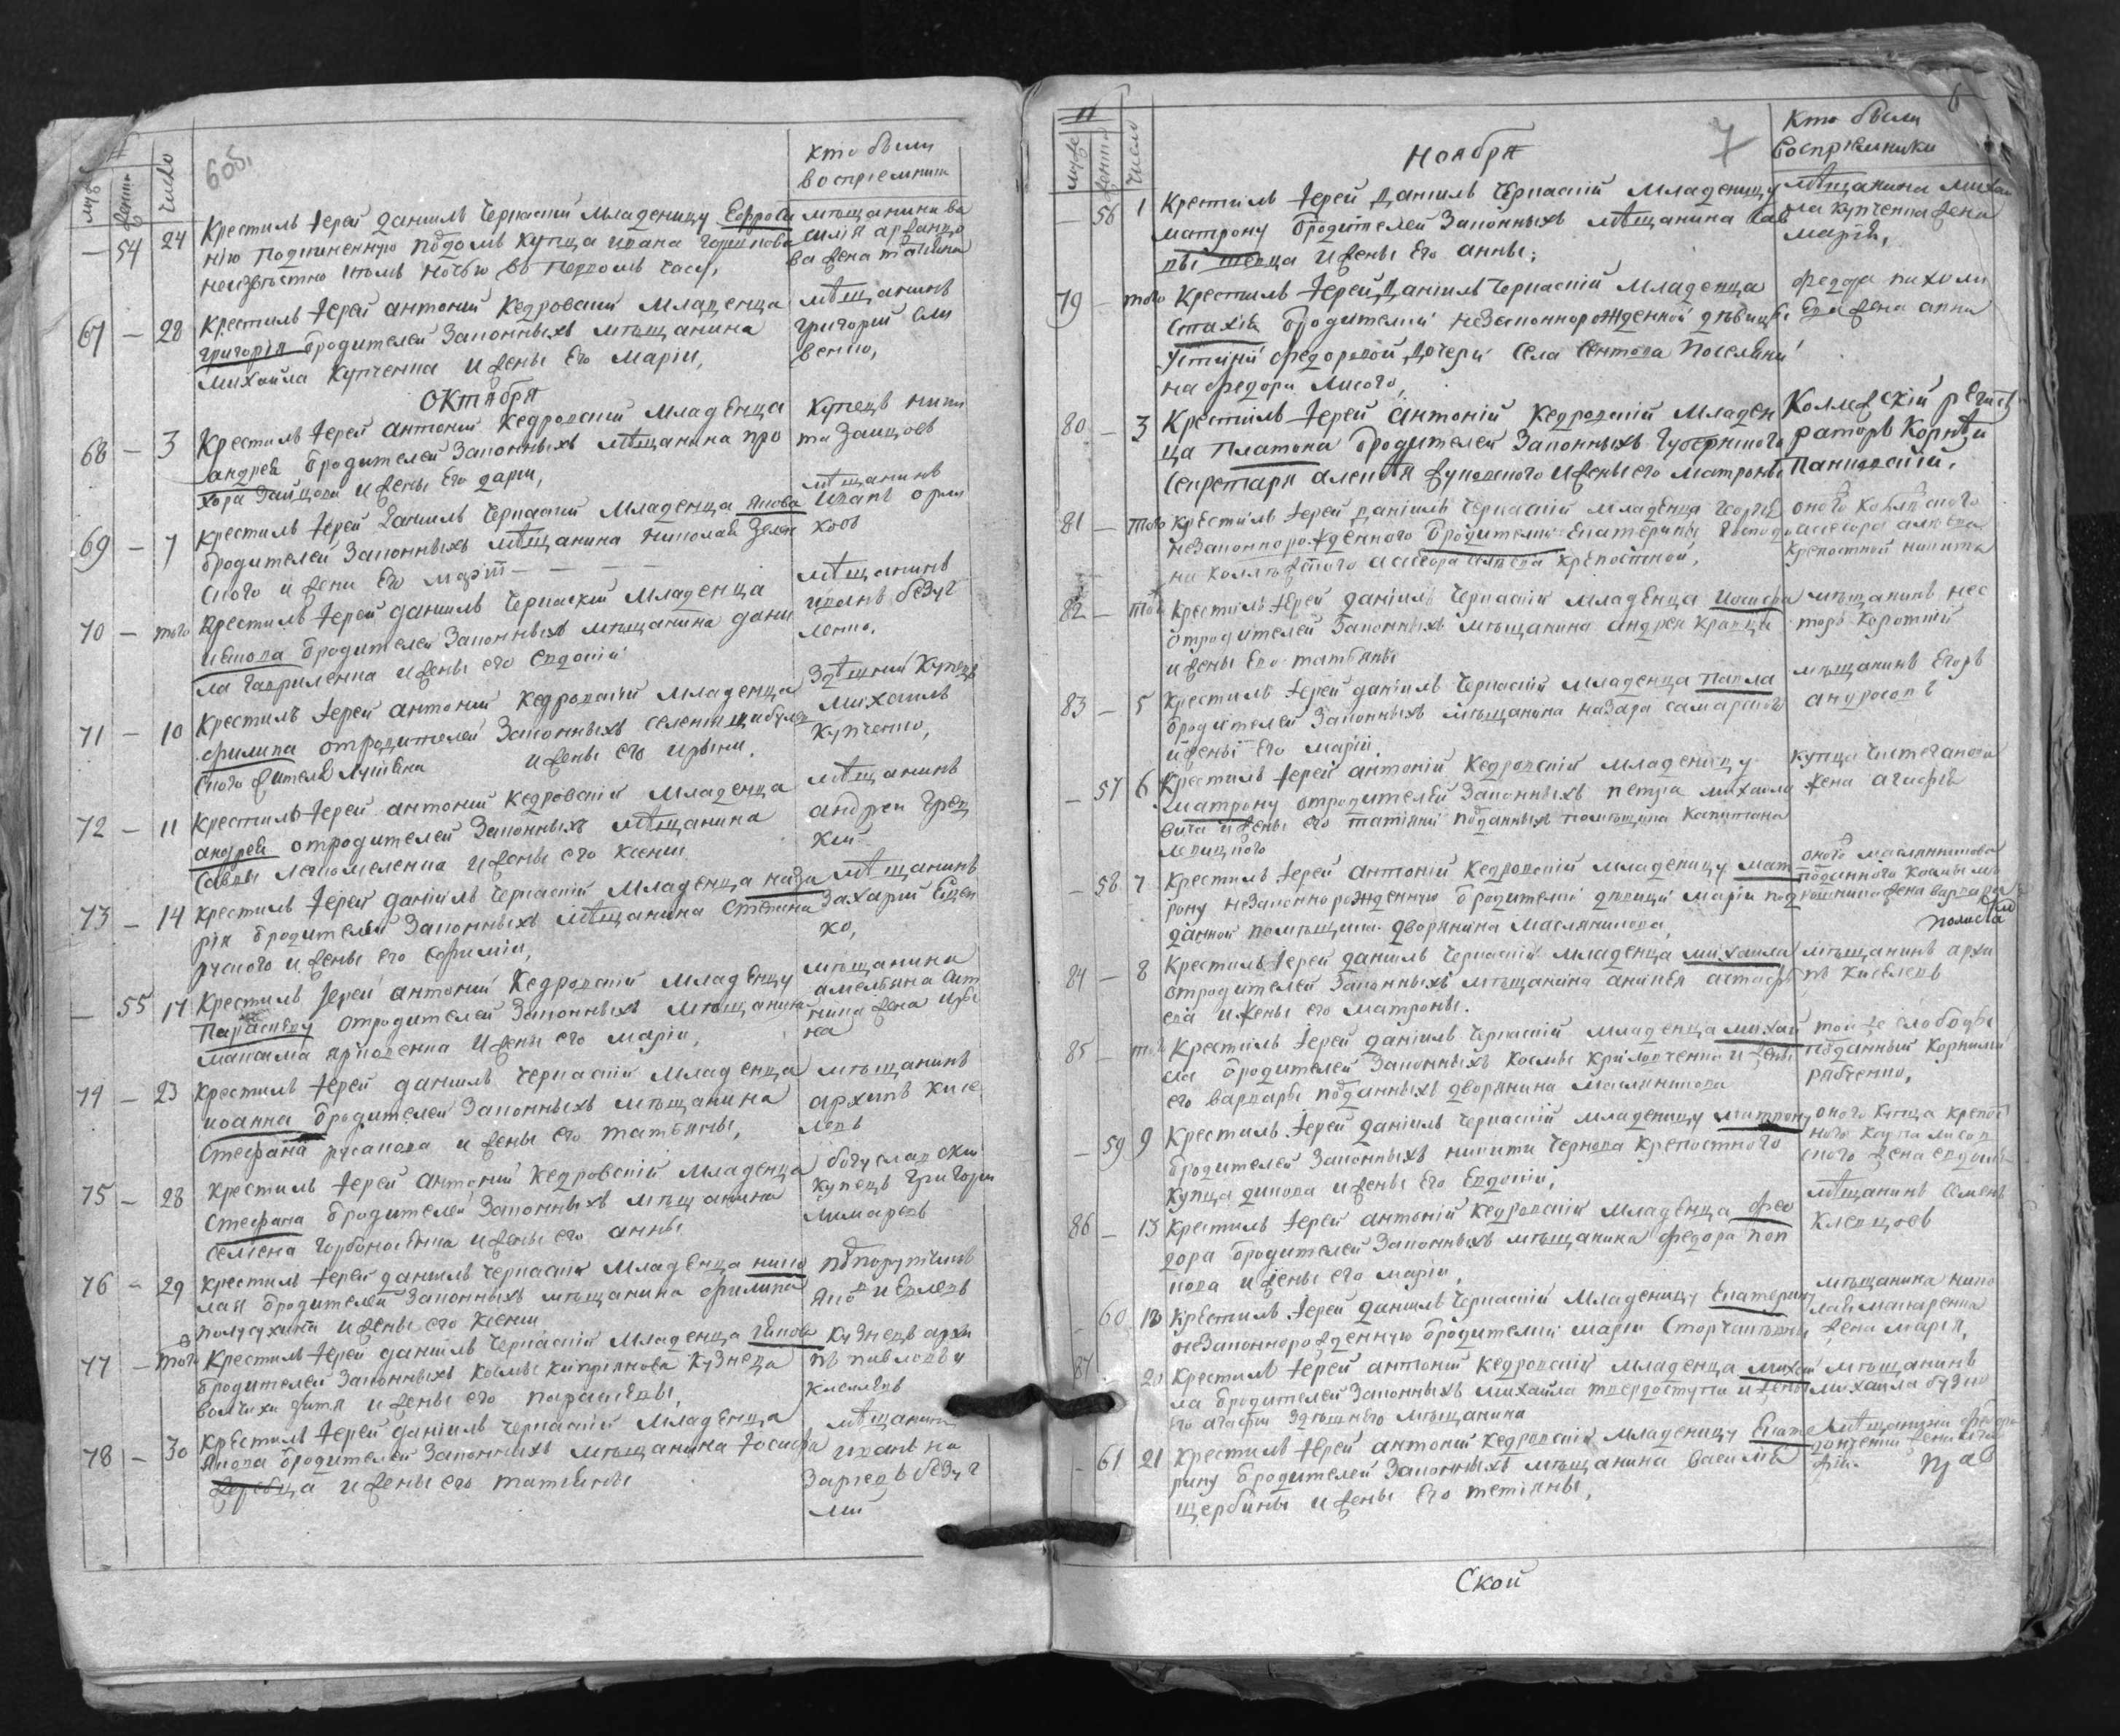 6 об.
муж женш число
кто были
воспрiемники
54 24 Крестилъ Iерей Данiилъ Черпаскiй Младеницу Ефроси
нiю подкиненную пôдомъ купца Ивана
неизвѣстно кѣмъ ночью въ первомъ часу,
мѣщанина ва
ва жена татiана
67 – 28 Крестилъ Iерей антонiй Кедровскiй Младенца
григорiя ôродителей Законныхъ мѣщанина
михаила Купченка и жены Его марiи,
мѣщанинъ
григорiй сли
венко,
Октября
68 – 3 Крестилъ Iерей антонiй Кедровскiй Младенца
андрея ôродителей Законныхъ мѣщанина про
хора Зайцова и жены Его дарiи,
Купецъ ники
та Заицовъ
69 – 7 Крестилъ Iерей Данiилъ Черпаскiй Младенца якова
ôродителей Законныхъ мѣщанина николая Зелен
ского и жены Его марiи
мѣщанинъ
Иванъ орли
ковъ
70 – того Крестилъ Iерей данiилъ Черпаскiй Младенца
иякова ôродителей Законныхъ мѣщанина дани
ла гавриленка и жены его Евдокiи
мѣщанинъ
иванъ безуг
ленко.
71 – 10 Крестилъ Iерей антонiй Кедровскiй Младенца
филипа отродителей Законныхъ
ского жителя и жены его ирыни.
Здѣшнiй Купецъ
михаилъ
Купченко,
72 – 11 Крестилъ Iерей антонiй Кедровскiй Младенца
андрея отродителей Законныхъ мѣщанина
Саввы и жены его ксенiи
мѣщанинъ
андрей грец
кiй
73 – 14 Крестилъ Iерей данiилъ Черпаскiй Младенца наза
рiя ôродителей Законныхъ мѣщанина Стефана
и жены его Ефимiи,
мѣщанинъ
Захарiй
ко,
– 55 17 Крестилъ Iерей антонiй Кедровскiй Младеницу
Параскеву отродителей Законныхъ мѣщанина
максима и жены его марiи,
мѣщанина
амельяна сит
ника жена ири
на
74 – 23 Крестилъ Iерей данiилъ Черпаскiй Младенца
иоанна ôродителей Законныхъ мѣщанина
Стефана русанова и жены его татьяны,
мѣщанинъ
архипъ кисе
левъ
75 – 28 Крестилъ Iерей антонiй Кедровскiй Младенца
Стефана ôродителей Законныхъ мѣщанина
семена горбоносенка и жены его анны
богуславскiй
купецъ григорiй
лимаревъ
76 – 29 Крестилъ Iерей данiилъ Черпаскiй Младенца нико
лая ôродителей Законныхъ мѣщанина филипа
полусухина и жены его Ксенiи
пôпорутчикъ
77 – того Крестилъ Iерей данiилъ Черпаскiй Младенца якова
ôродителей Законныхъ Космы Кипрiянова Кузнеца
и жены его параскевы,
кузнецъ архи
пъ павловъ
78 – 30 Крестилъ Iерей данiилъ Черпаскiй Младенца
якова ôродителей Законныхъ мѣщанина Iосифа
и жены его татiяны
мѣщанинъ
иванъ на
заревъ безуг
лый
6
7
муже женск число
Ноября
Кто были
Воспрiемники
– 56 1 Крестилъ Iерей Данiилъ Черпаскiй Младеницу
матрону ôродителей Законныхъ мѣщанина Сав
вы швеца и жены Его анны;
мѣщанина Михаи
ла купченка жена
марiя,
79 – того Крестилъ Iерей Данiилъ Черпаскiй Младенца
Стахiя ôродителки незаконнорожденной дѣвицы
Устинiи федоровой дочери села Сентова поселяни
на федора лисого,
федора пихоли
жена анна
80 – 3 Крестилъ Iерей Антонiй Кедровскiй Младен
ца Платона ôродителей Законныхъ Губернского
Секретаря алексѣя жуковского и жены его матроны
Коллежскiй регист
раторъ Корнѣи
Панковскiй.
81 – того Крестилъ Iерей данiилъ Черпаскiй Младенца георгiя
незаконнорожденного ôродителки Екатерины
на коллѣжского ассесора крѣпостной,
оного колѣжского
ассесора
крепостной никита
82 – того Крестилъ Iерей данiилъ Черпаскiй Младенца Иосифа
отродителей Законныхъ мѣщанина андрея Кравца
и жены Его татьяны
мѣщанинъ нес
торъ Короткiй
83 – 5 Крестилъ Iерей данiилъ Черпаскiй Младенца Павла
ôродителей Законныхъ мѣщанина назара самарского
и жены Его марiи.
мѣщанинъ Егоръ
андросовъ
– 57 6 Крестилъ Iерей антонiй Кедровскiй Младеницу
матрону отродителей Законныхъ петра михаило
вича и жены его татiянiи пôданныхъ помѣщика Капитана
купца чистеганова
жена агафiя
– 58 7 Крестилъ Iерей антонiй Кедровскiй младеницу мат
рону незаконнорожденную ôродителки дѣвици марiи под
данной помѣщика дворянина маслянникова,
оного маслянникова
поданного космы
жена варвара
84 – 8 Крестилъ Iерей данiилъ Черпаскiй младенца михаила
отродителей Законныхъ мѣщанина аникѣя астафь
ева и жены его матроны.
мѣщанинъ архи
пъ киселевъ
85 – того Крестилъ Iерей данiилъ Черпаскiй младенца михаи
ла ôродителей Законныхъ космы и жены
его варвары пôданныхъ дворянина маслянникова
той же слободы
пôданный корнилiй
рябченко,
– 59 9 Крестилъ Iерей данiилъ Черпаскiй младеницу матрону
ôродителей Законныхъ никити чернова крепостного
купца дикова и жены Его Евдокiи,
оного купца крепос
ного карпа лисов
ского жена евдокiя
86 – 13 Крестилъ Iерей антонiй Кедровскiй Младенца фео
дора ôродителей Законныхъ мѣщанина федора поп
кова и жены его марiи,
мѣщанинъ Семенъ
клевцовъ
– 60 18 Крестилъ Iерей данiилъ Черпаскiй Младеницу Екатерину
незаконнорожденную ôродителки марiи
мѣщанина нико
лая макаренка
жена марiя,
87 20 Крестилъ Iерей антонiй Кедровскiй младенца михаи
ла ôродителей Законныхъ михаила твердоступа и жены
Его агафiи здѣшнего мѣщанина
мѣщанинъ
михаила
– 61 21 Крестилъ Iерей антонiй Кедровскiй Младеницу Екате
рину ôродителей Законныхъ мѣщанина василiя
щербины и жены Его тетiяны,
Ской